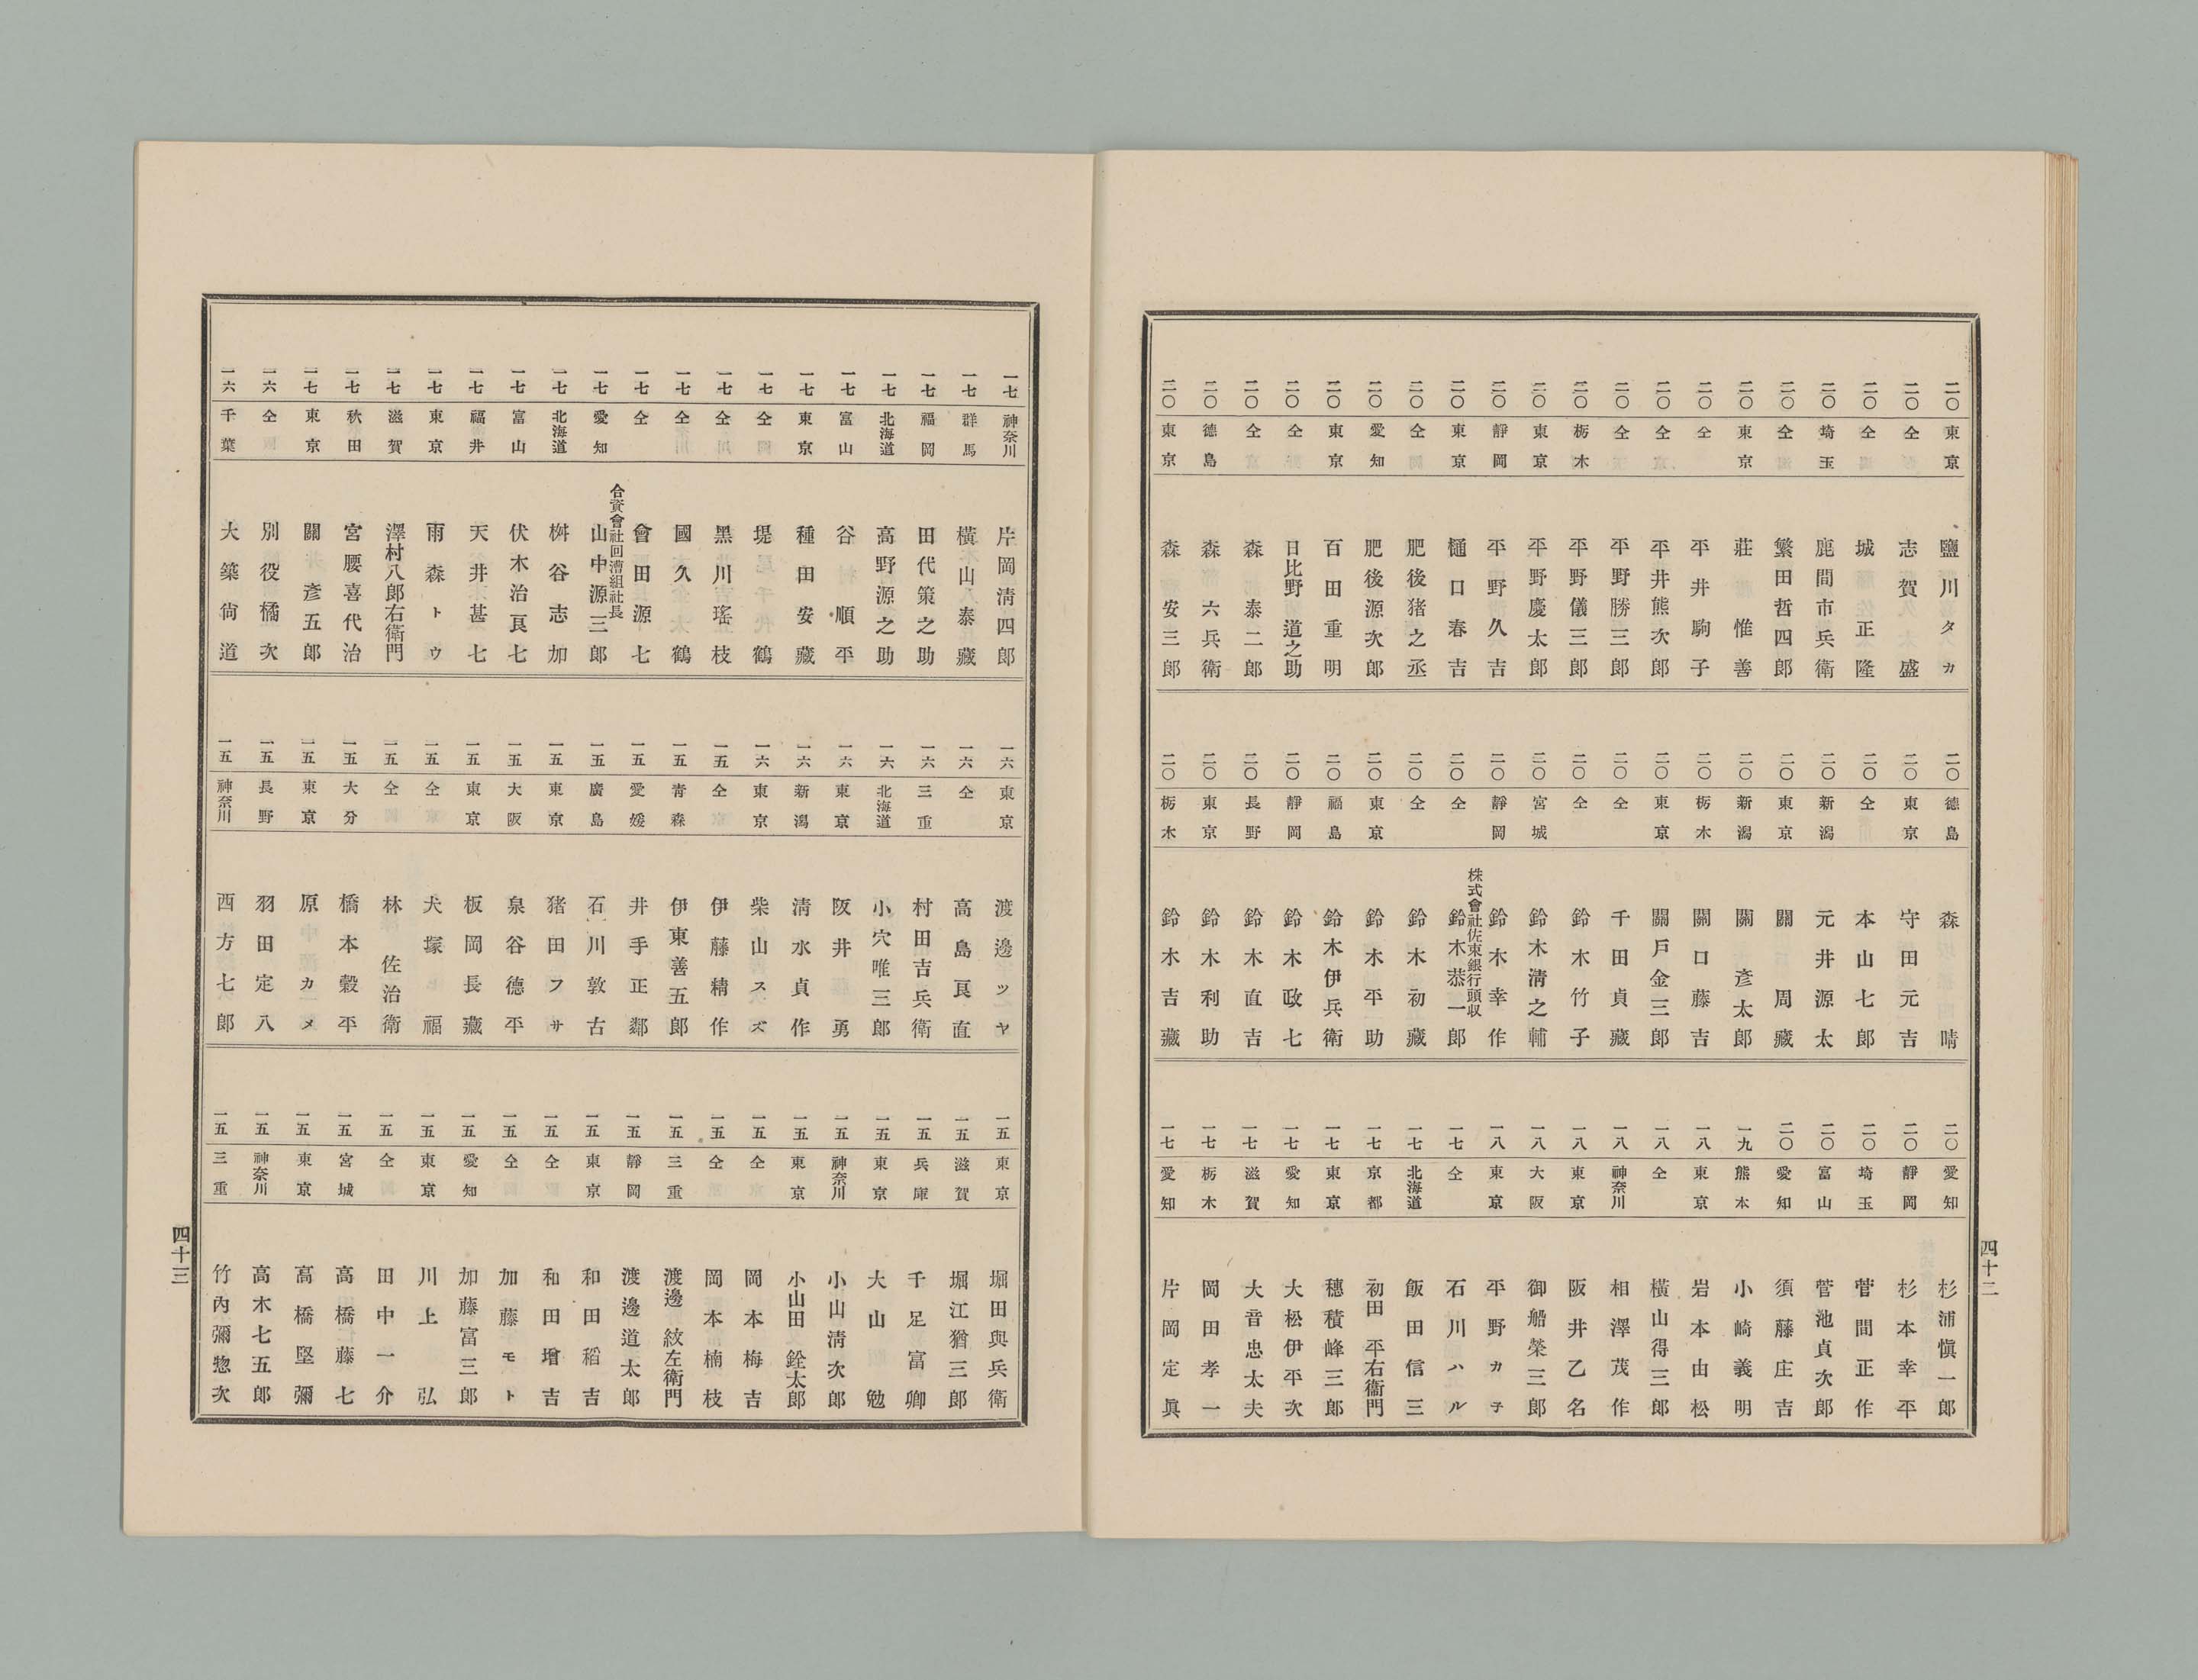 二〇 東京 鹽川タノカ
二〇 仝 志賀盛
二〇 仝 城正隆
二〇 埼玉 鹿間市兵衛
二〇 仝 繁田哲四郎
二〇 東京 莊惟善
二〇 仝 平井駒子
二〇 仝 平井熊次郎
二〇 仝 平野勝三郎
二〇 栃木 平野儀三郎
二〇 東京 平野慶太郎
二〇 靜岡 平野久吉
二〇 東京 樋口春吉
二〇 仝 肥後猪之丞
二〇 愛知 肥後源次郎
二〇 東京 百田重明
二〇 仝 日比野道之助
二〇 仝 森泰二郎
二〇 德島 森六兵衛
二〇 東京 森安三郎
二〇 德島 森晴
二〇 東京 守田元吉
二〇 仝 本山七郎
二〇 新潟 元井源太
二〇 東京 關周藏
二〇 新潟 關彥太郎
二〇 栃木 關口藤吉
二〇 東京 關戶金三郎
二〇 仝 千田貞藏
二〇 仝 鈴木竹子
二〇 宮城 鈴木淸之輔
二〇 靜岡 鈴木幸作
二〇 仝 株式會社佐東銀行頭収 鈴木恭一郎
二〇 仝 鈴木初藏
二〇 東京 鈴木平助
二〇 福島 鈴木伊兵衛
二〇 靜岡 鈴木政七
二〇 長野 鈴木直吉
二〇 東京 鈴木利助
二〇 栃木 鈴木吉藏
二〇 愛知 杉浦愼一郎
二〇 靜岡 杉本幸平
二〇 埼玉 菅間正作
二〇 富山 菅池貞次郎
二〇 愛知 須藤庄吉
一九 熊本 小崎義明
一八 東京 岩本由松
一八 仝 橫山得三郎
一八 神奈川 相澤茂作
一八 東京 阪井乙名
一八 大阪 御船榮三郎
一八 東京 平野カ子
一七 仝 石川ハル
一七 北海道 飯田信三
一七 京都 初田平右衞門
一七 東京 穗積峰三郎
一七 愛知 大松伊平次
一七 滋賀 大音忠太夫
一七 栃木 岡田孝一
一七 愛知 片岡定眞
四十二
一七 神奈川 片岡淸四郎
一七 群馬 橫山泰藏
一七 福岡 田代策之助
一七 北海道 高野源之助
一七 富山 谷順平
一七 東京 種田安藏
一七 仝 堤鶴
一七 仝 黑川瑤枝
一七 仝 國久鶴
一七 仝 會田源七
一七 愛知 合資會社回漕組社長 山中源三郎
一七 北海道 桝谷志加
一七 富山 伏木治良七
一七 福井 天井甚七
一七 東京 雨森トウ
一七 滋賀 澤村八郎右衞門
一七 秋田 宮腰喜代治
一七 東京 關彥五郎
一六 仝 別役橘次
一六 千葉 大築尙道
一六 東京 渡邊ツヤ
一六 仝 高島良直
一六 三重 村田吉兵衛
一六 北海道 小穴唯三郎
一六 東京 阪井勇
一六 新潟 淸水貞作
一六 東京 柴山スズ
一五 仝 伊藤精作
一五 靑森 伊東善五郎
一五 愛媛 井手正鄰
一五 廣島 石川敦古
一五 東京 猪田フサ
一五 大阪 泉谷德平
一五 東京 板岡長藏
一五 仝 犬塚福
一五 仝 林佐治衛
一五 大分 橋本穀平
一五 東京 原カメ
一五 長野 羽田定八
一五 神奈川 西方七郎
一五 東京 堀田與兵衛
一五 滋賀 堀江猶三郎
一五 兵庫 千足富卿
一五 東京 大山勉
一五 神奈川 小山淸次郎
一五 東京 小山田銓太郎
一五 仝 岡本梅吉
一五 仝 岡本楠枝
一五 三重 渡邊紋左衞門
一五 靜岡 渡邊道太郎
一五 東京 和田稻吉
一五 仝 和田增吉
一五 仝 加藤モト
一五 愛知 加藤富三郎
一五 東京 川上弘
一五 仝 田中一介
一五 宮城 高橋藤七
一五 東京 高橋堅彌
一五 神奈川 高木七五郎
一五 三重 竹內彌惣次
四十三